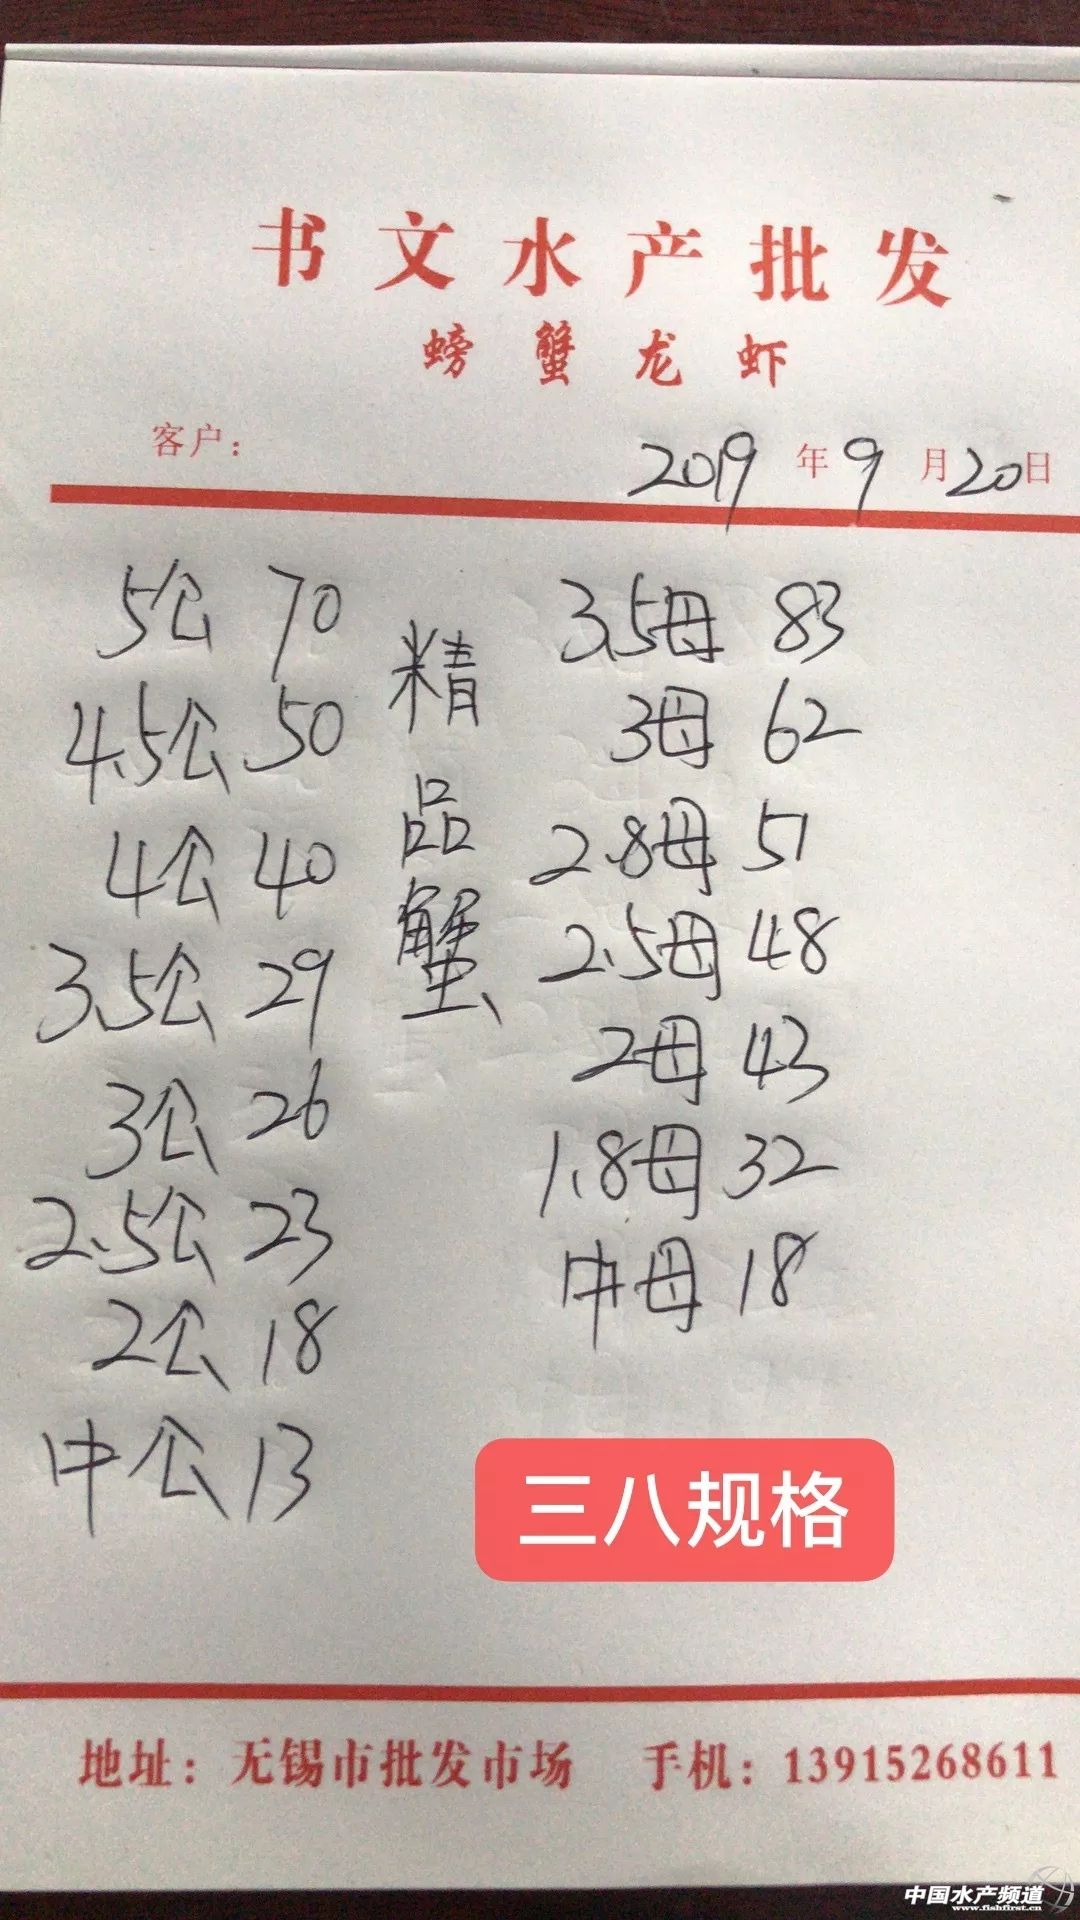 书文水产批发
螃蟹龙虾
客户：
2019年9月20日
5公 70
4.5公 50
4公 40
3.5公 29
3公 26
2.5公 23
2公 18
中公 13
精品蟹
3.5母 83
3母 62
2.8母 51
2.5母 48
2母 43
1.8母 32
中母 18
三八规格
地址：无锡市批发市场 手机：13915268611
中国水产频道
www.fishfirst.cn